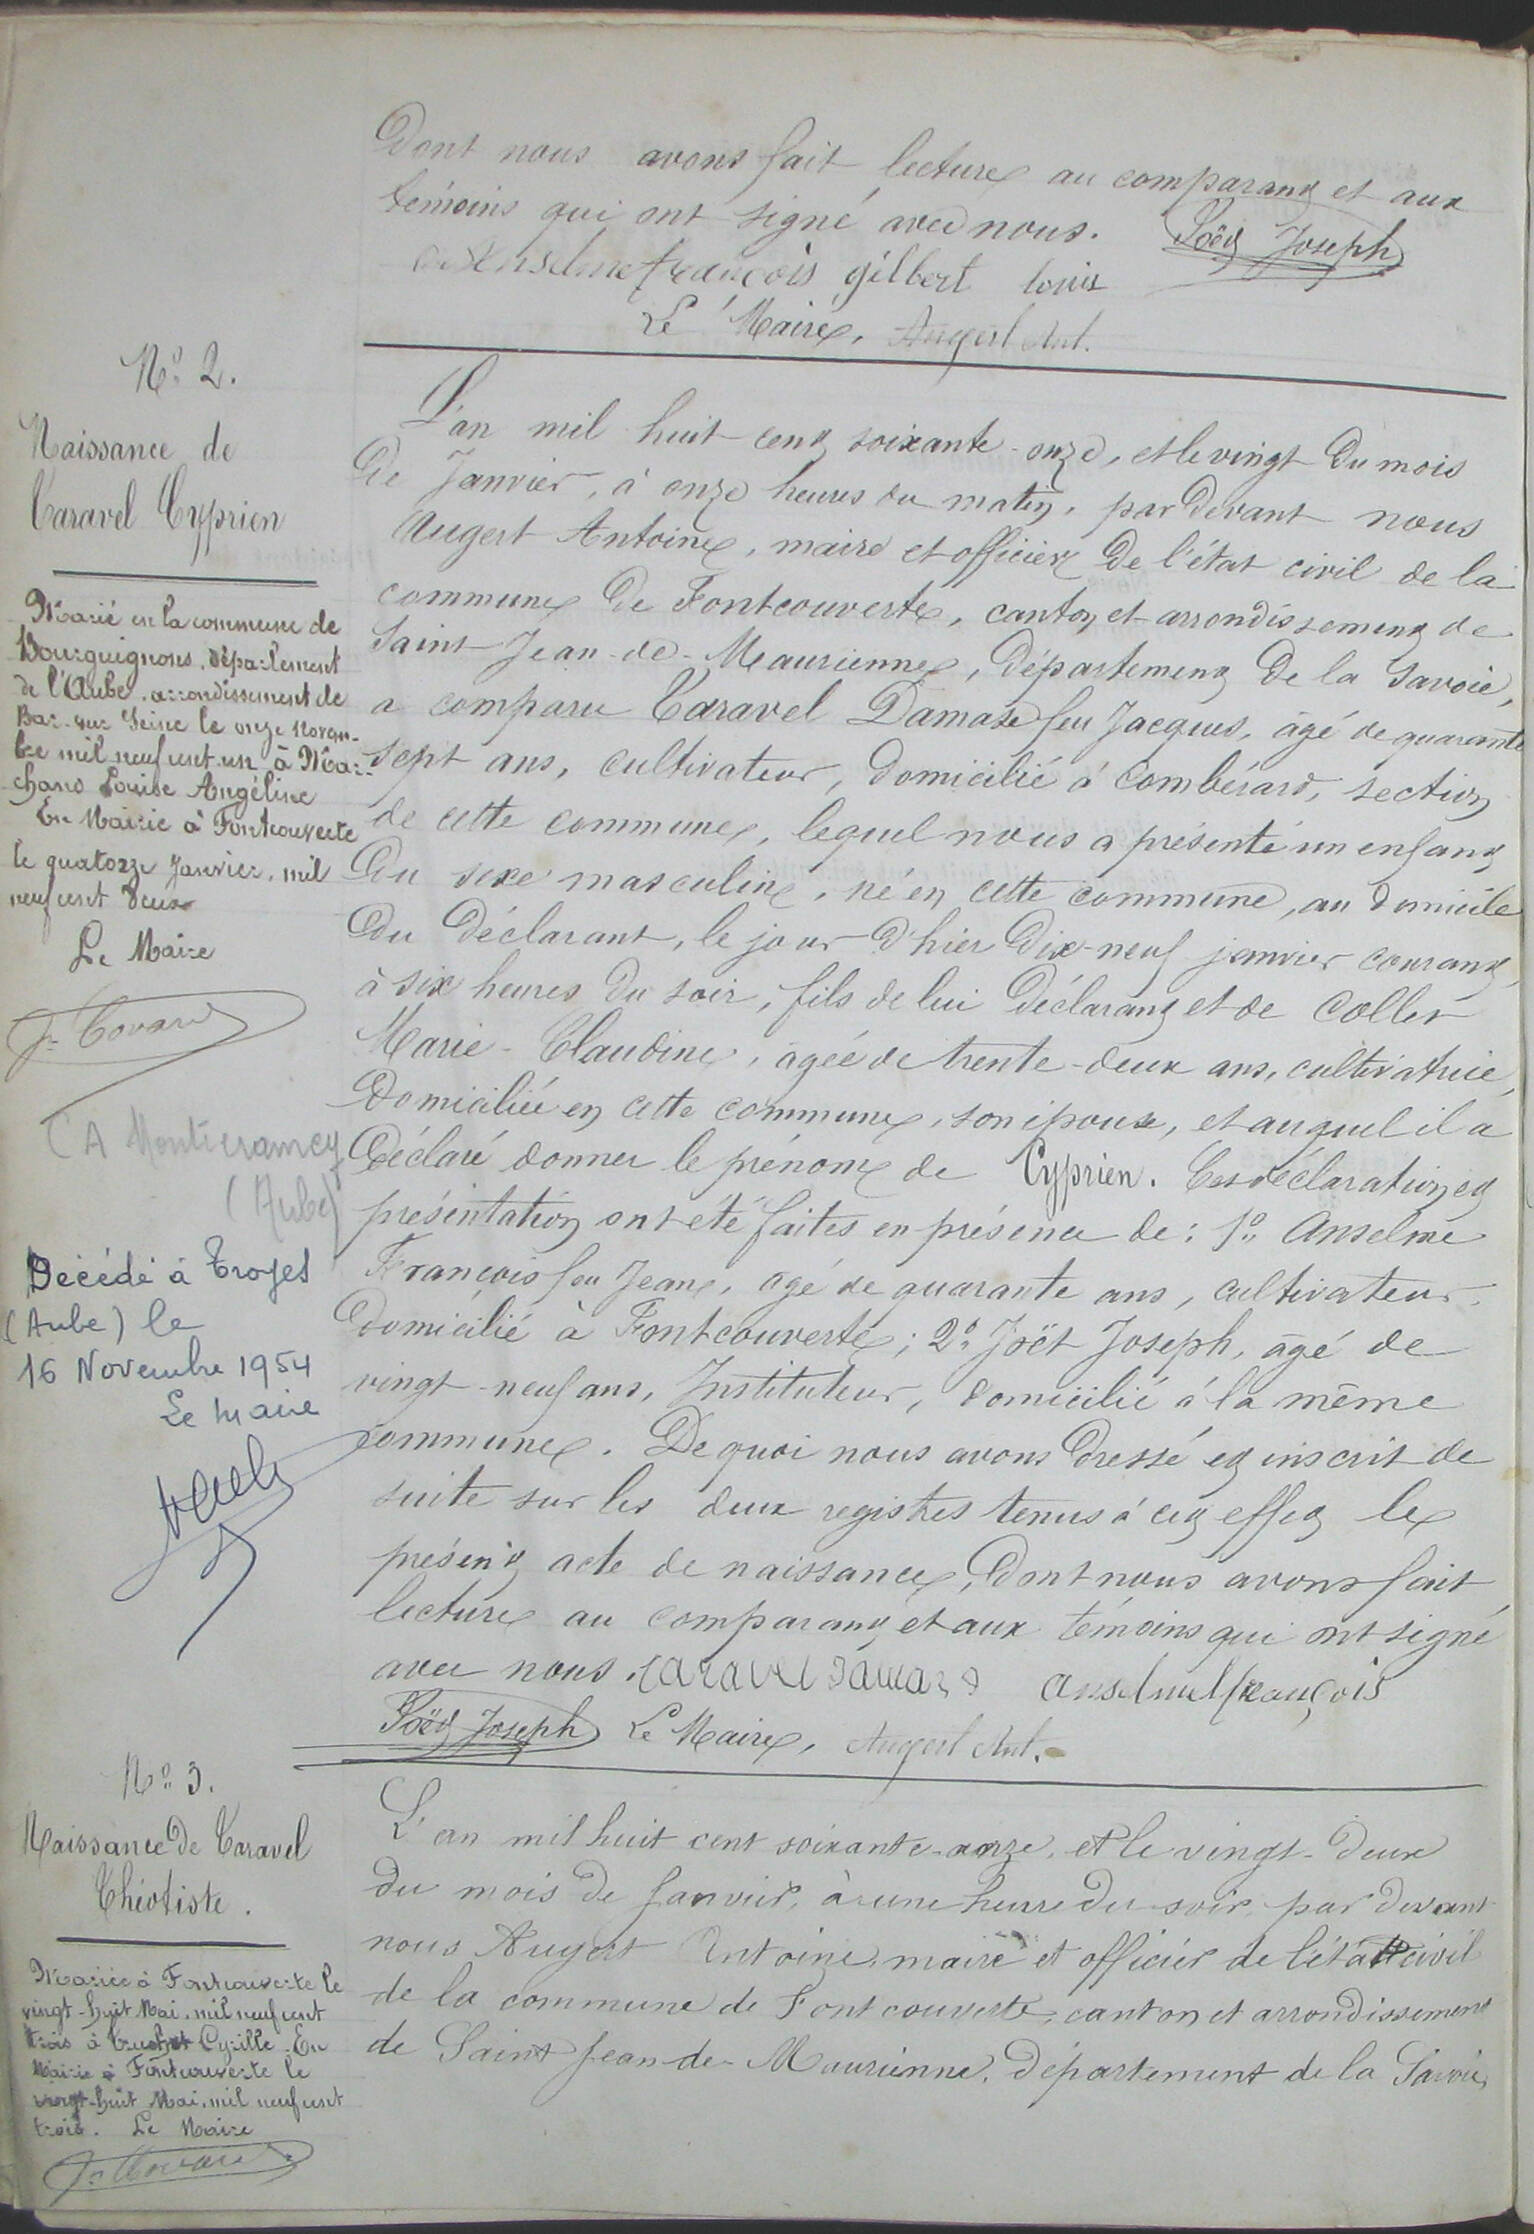 Dont nous avons fait lecture au comparant et aux
témoins qui ont signé avec nous. Joët Joseph
Anselme françois gilbert louis
Le Maire, Augert Ant.
N° 2.
Naissance de
Caravel Cyprien
Marié en la commune de
Bourguignons, département
de l'Aube, arrondissement de
Bar-sur-Seine le onze novem-
bre mil neuf cent un à Mar-
chand Louise Angéline
En Mairie à Fontcouverte
le quatorze Janvier, mil
neuf cent deux
Le Maire
(A Montiéramey
(Aube)
Décédé à Troyes
(Aube) le
16 Novembre 1954
Le Maire
L'an mil huit cent soixante-onze, et le vingt du mois
de Janvier, à onze heures du matin, par devant nous
Augert Antoine, maire et officier de l'état civil de la
commune de Fontcouverte, canton et arrondissement de
Saint-Jean-de-Maurienne, département de la Savoie,
a comparu Caravel Damase feu Jacques, âgé de quarante
sept ans, cultivateur, domicilié à Combérard, section
de cette commune, lequel nous a présenté un enfant
du sexe masculin, né en cette commune, au domicile
du déclarant, le jour d'hier dix-neuf janvier courant,
à six heures du soir, fils de lui déclarant et de Collet
Marie-Claudine, âgée de trente-deux ans, cultivatrice,
domiciliée en cette commune, son épouse, et auquel il a
déclaré donner le prénom de Cyprien. Ces déclaration et
présentation ont été faites en présence de: 1° Anselme
François feu Jean, âgé de quarante ans, cultivateur,
domicilié à Fontcouverte; 2° Joët Joseph, âgé de
vingt-neuf ans, Instituteur, domicilié à la même
commune. De quoi nous avons dressé et inscrit de
suite sur les deux registres tenus à cet effet le
présent acte de naissance, dont nous avons fait
lecture au comparant et aux témoins qui ont signé
avec nous. Caravel Damase Anselme françois
Joët Joseph Le Maire, Augert Ant.
N° 3.
Naissance de Caravel
Théotiste.
Mariée à Fontcouverte le
vingt-huit Mai, mil neuf cent
trois à Truchet Cyrille. En
Mairie à Fontcouverte le
vingt-huit Mai, mil neuf cent
trois. Le Maire
L'an mil huit cent soixante-onze, et le vingt-deux
du mois de Janvier, à une heure du soir, par devant
nous Augert Antoine, maire et officier de l'état civil
de la commune de Fontcouverte, canton et arrondissement
de Saint Jean-de-Maurienne, département de la Savoie,